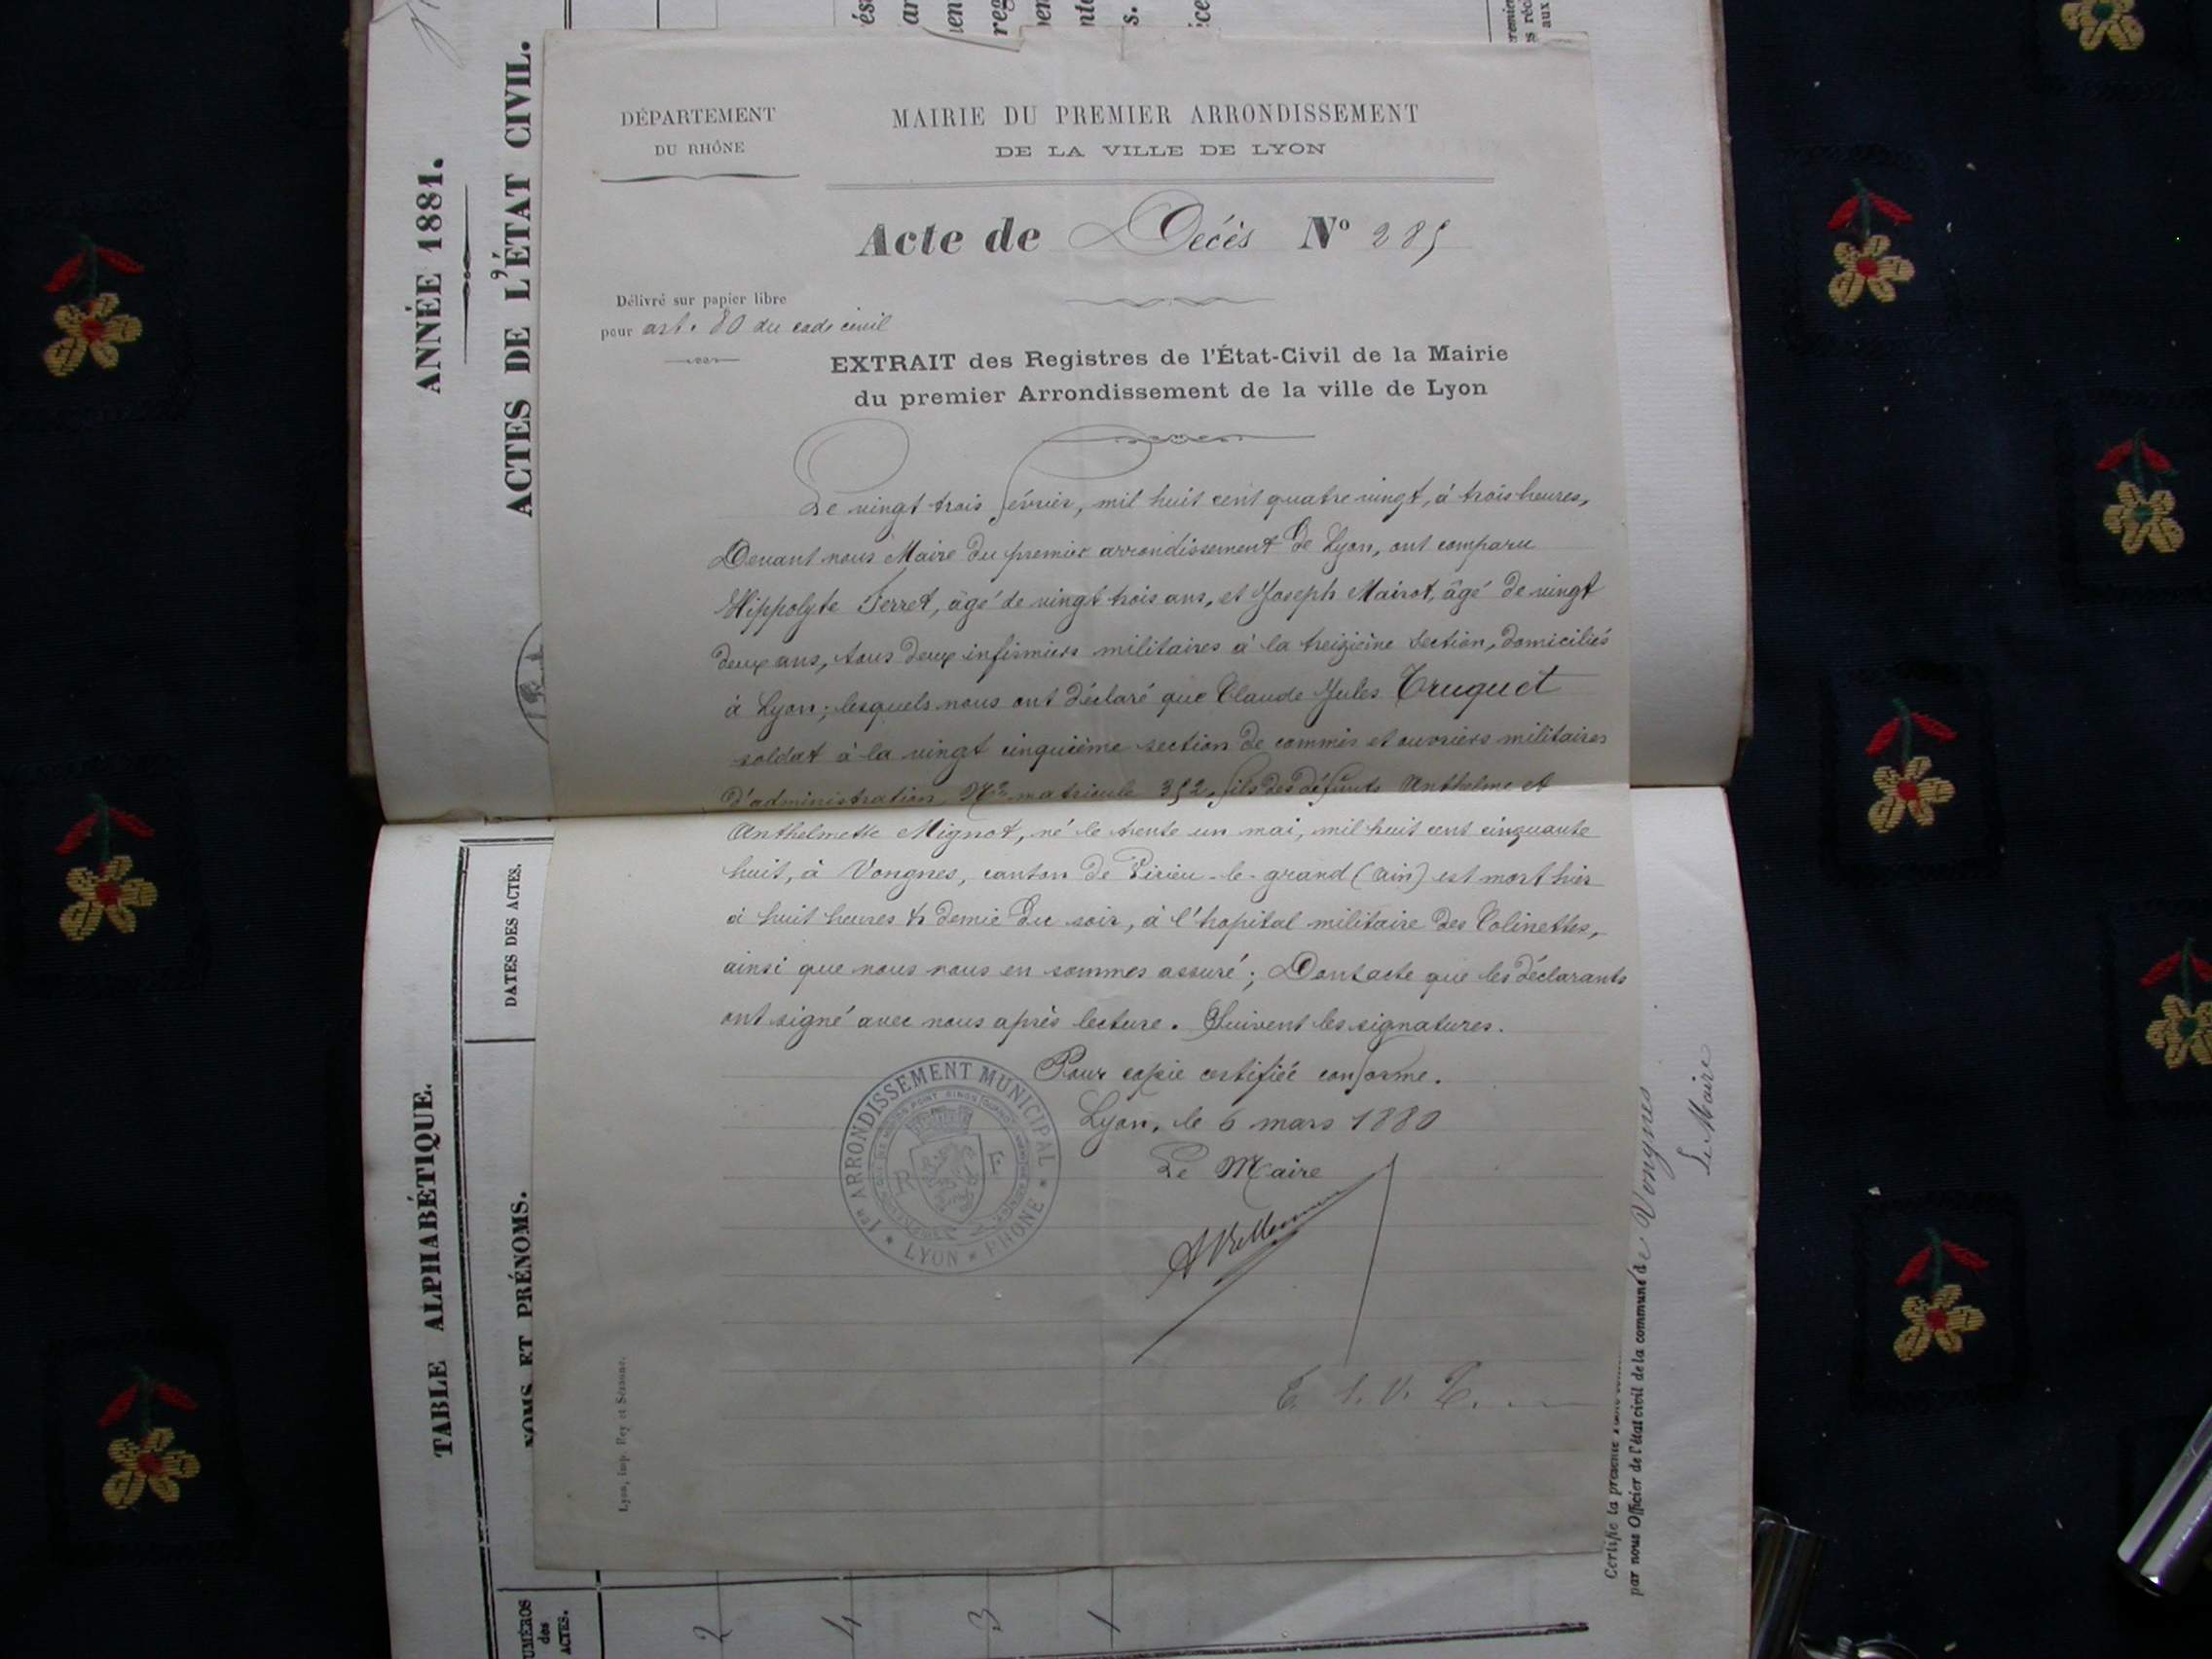 DÉPARTEMENT
DU RHÔNE
MAIRIE DU PREMIER ARRONDISSEMENT
DE LA VILLE DE LYON
Acte de Décès Nº 285
Délivré sur papier libre
pour art. 80 du code civil
EXTRAIT des Registres de l'État-Civil de la Mairie
du premier Arrondissement de la ville de Lyon
Le vingt trois février, mil huit cent quatre vingt, à trois heures,
Devant nous Maire du premier arrondissement de Lyon, ont comparu
Hippolyte Ferret, âgé de vingt trois ans, et Joseph Mairot, âgé de vingt
deux ans, tous deux infirmiers militaires à la treizième section, domiciliés
à Lyon; lesquels nous ont déclaré que Claude Jules Truquet
soldat à la vingt cinquième section de commis et ouvriers militaires
d'administration, Nº matricule 352, fils des défunts Anthelme et
Anthelmette Mignot, né le trente un mai, mil huit cent cinquante
huit, à Vongnes, canton de Virieu-le-grand (ain) est mort hier
à huit heures & demie du soir, à l'hopital militaire des Colinettes,
ainsi que nous nous en sommes assuré; Dont acte que les déclarants
ont signé avec nous après lecture. Suivent les signatures.
Pour copie certifiée conforme.
Lyon, le 6 mars 1880
Le Maire
T. S. V. P.
1er ARRONDISSEMENT MUNICIPAL
R F
LYON * RHONE
Lyon, Imp. Rey et Sézanne.
ANNÉE 1881.
ACTES DE L'ÉTAT CIVIL.
TABLE ALPHABÉTIQUE.
DATES DES ACTES.
NOMS ET PRÉNOMS.
NUMÉROS
des
ACTES.
2
4
3
1
Certifié la présente
par nous Officier de l'état civil de la commune de Vongnes
Le Maire